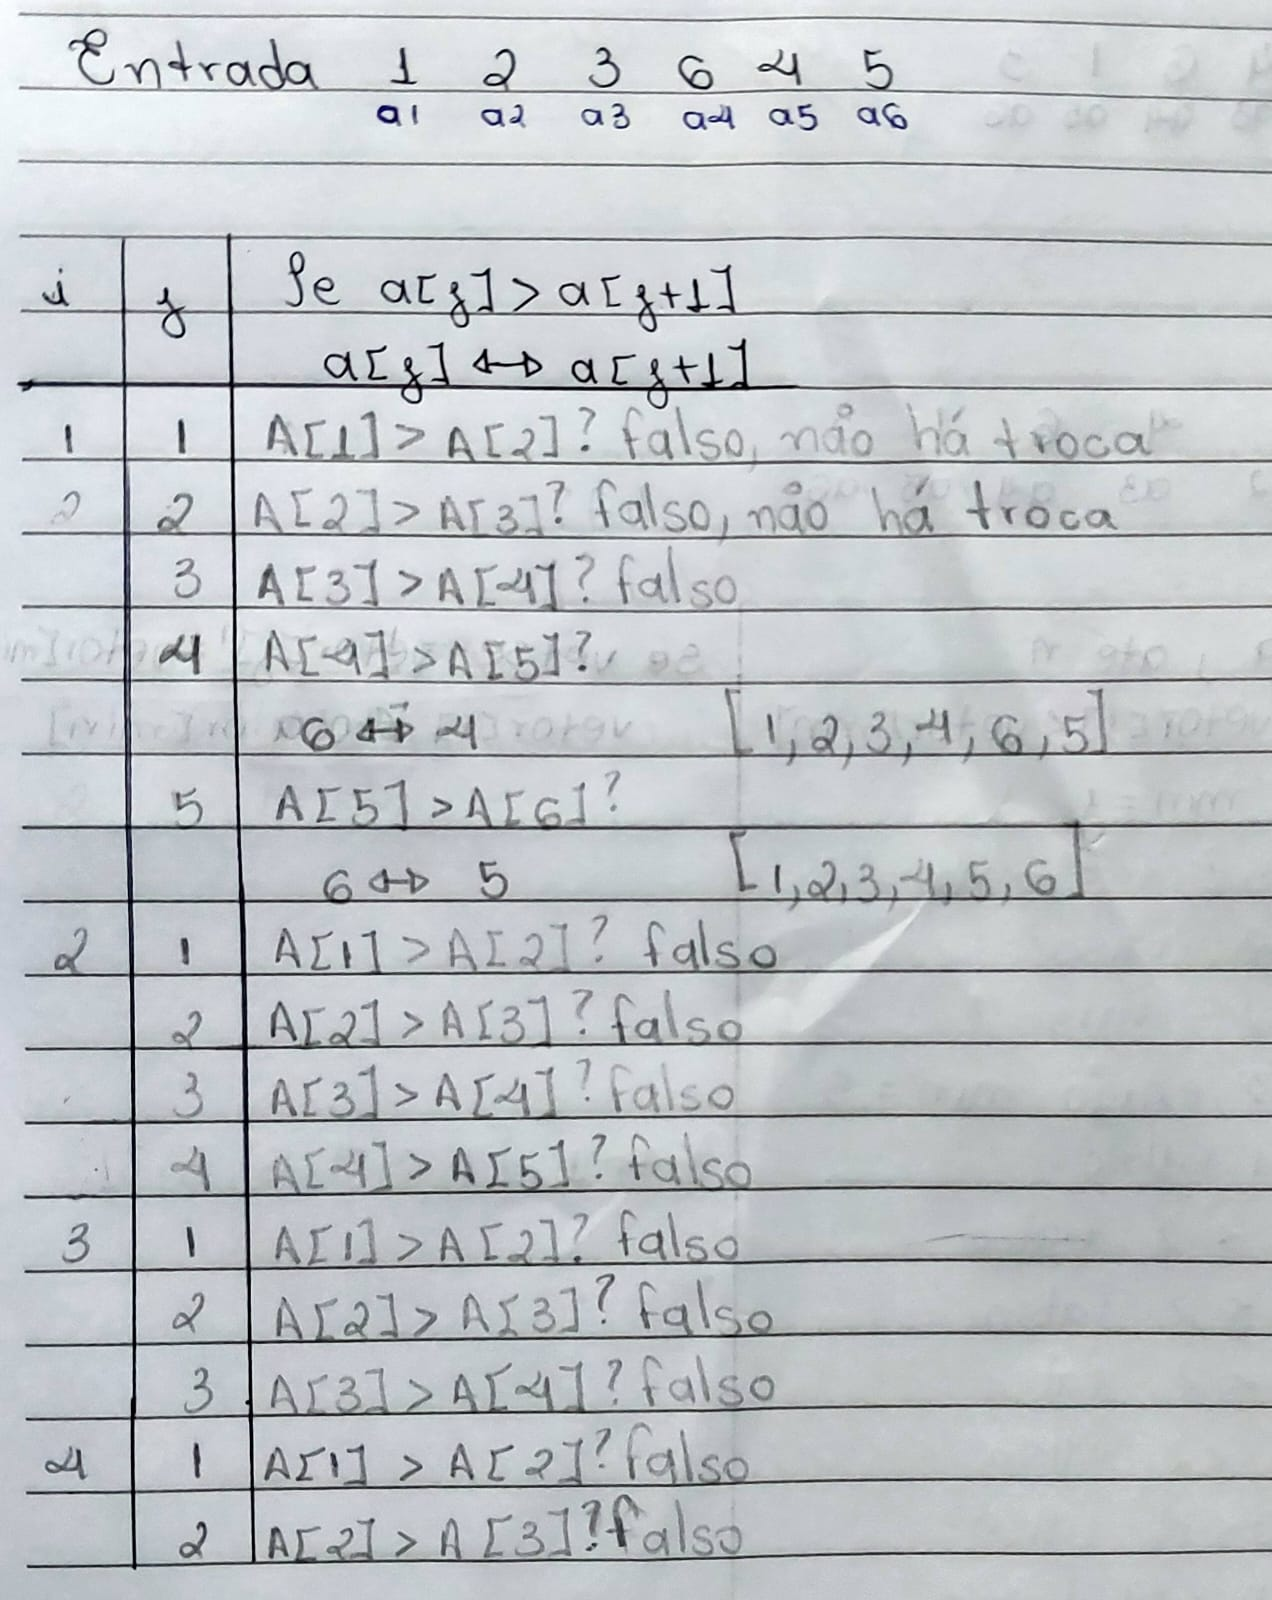 Entrada 1 2 3 6 4 5
a1 a2 a3 a4 a5 a6
i j Se a[j] > a[j+1]
a[j] ↔ a[j+1]
1 1 A[1] > A[2]? falso, não há troca
2 2 A[2] > A[3]? falso, não há troca
3 A[3] > A[4]? falso
4 A[4] > A[5]?
6 ↔ 4 [1, 2, 3, 4, 6, 5]
5 A[5] > A[6]?
6 ↔ 5 [1, 2, 3, 4, 5, 6]
2 1 A[1] > A[2]? falso
2 A[2] > A[3]? falso
3 A[3] > A[4]? falso
4 A[4] > A[5]? falso
3 1 A[1] > A[2]? falso
2 A[2] > A[3]? falso
3 A[3] > A[4]? falso
4 1 A[1] > A[2]? falso
2 A[2] > A[3]? falso